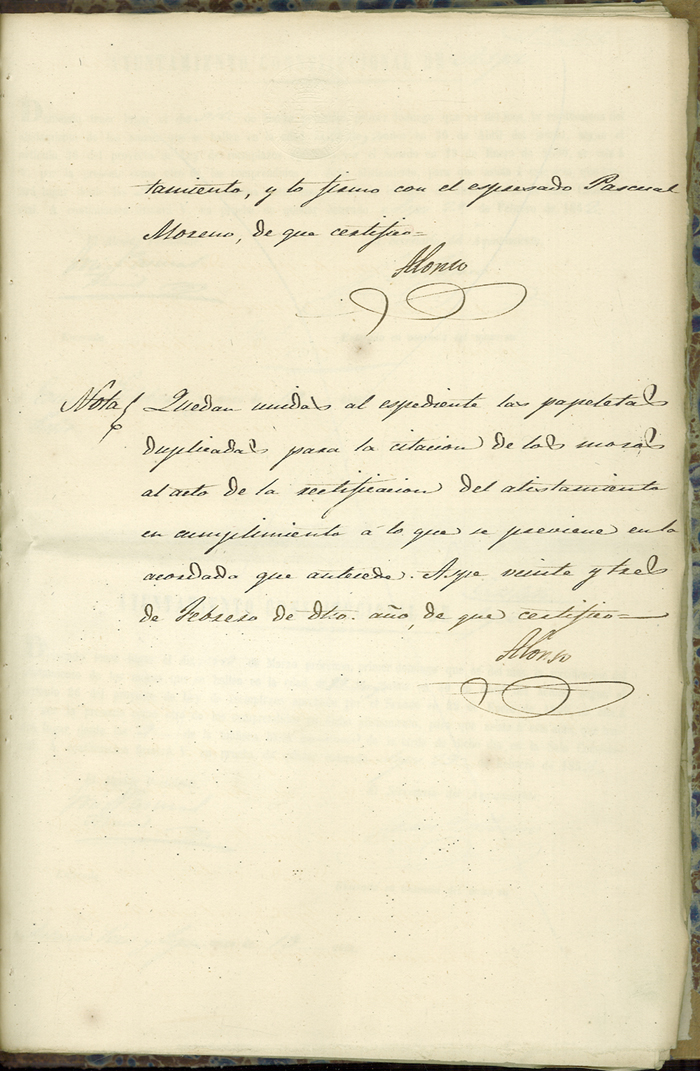 tamiento, y lo firmo con el espresado Pascual
Moreno, de que certifico=
Alonso
Nota Quedan unidas al espediente las papeletas
duplicadas para la citacion de los mozos
al acto de la rectificacion del alistamiento
en cumplimiento á lo que se previene en lo
acordado que antecede. Aspe veinte y tres
de Febrero de dho. año, de que certifico=
Alonso